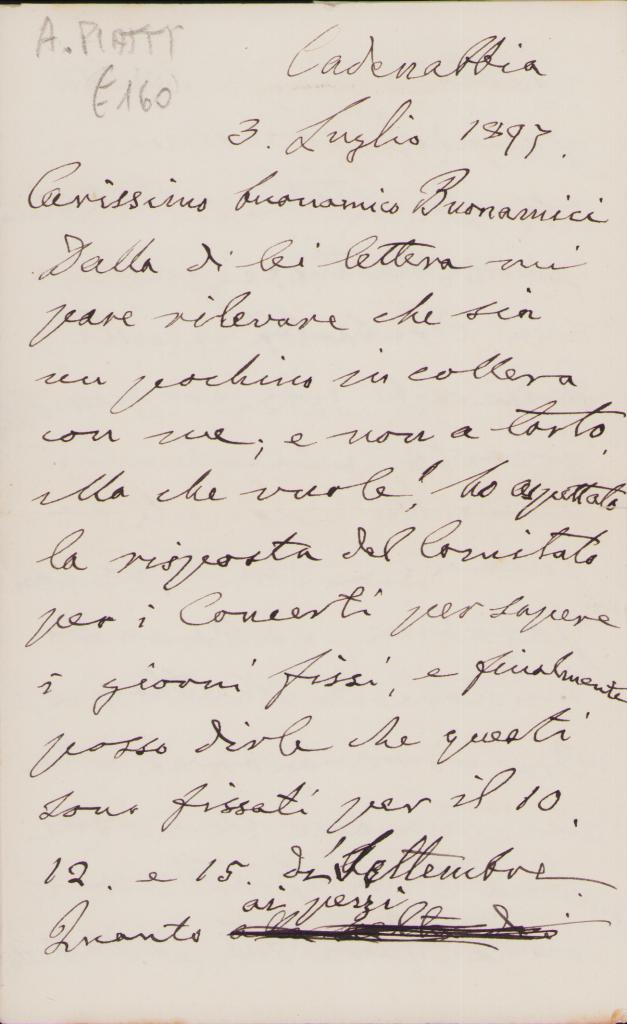 A. PIATTI
E160
Cadenabbia
3. Luglio 1897.
Carissimo buonamico Buonamici
Dalla di lei lettera mi
pare rilevare che sia
un pochino in collera
con me; e non a torto.
Ma che vuole!, ho aspettato
la risposta del Comitato
per i Concerti per sapere
i giorni fissi, e finalmente
posso dirle che questi
sono fissati per il 10.
12. e 15. di Settembre
ai pezzi
Quanto